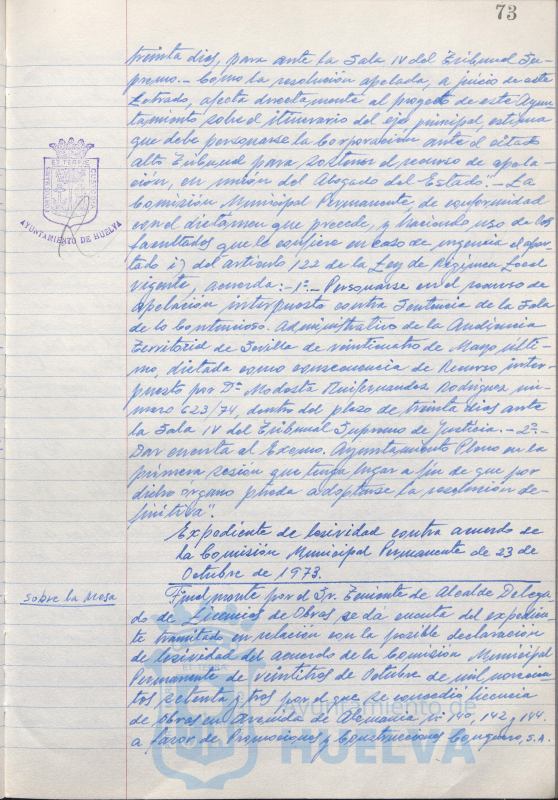 73
treinta dias, para ante la Sala IV del Tribunal Su-
premo.- Como la resolución apelada, a juicio de este
Letrado, afecta directamente al proyecto de este Ayun-
tamiento sobre el itinerario del eje principal, estima
que debe personarse la Corporación ante el citado
alto Tribunal para sostener el recurso de apela-
ción, en unión del Abogado del Estado".- La
Comisión Municipal Permanente, de conformidad
con el dictamen que precede, y haciendo uso de las
facultades que le confiere en caso de urgencia el apar-
tado i) del artículo 122 de la Ley de Régimen Local
vigente, acuerda:-1º.- Personarse en el recurso de
apelación interpuesto contra Sentencia de la Sala
de lo Contencioso-Administrativo de la Audiencia
Territorial de Sevilla de veinticuatro de Mayo últi-
mo, dictada como consecuencia de Recurso inter-
puesto por Dª Modesta Rodriguez nú-
mero 623/74, dentro del plazo de treinta dias ante
la Sala IV del Tribunal Supremo de Justicia.-2º.-
Dar cuenta al Excmo. Ayuntamiento Pleno en la
primera sesión que tenga lugar a fin de que por
dicho órgano pueda adoptarse la resolución de-
finitiva".
Expediente de lesividad contra acuerdo de
la Comisión Municipal Permanente de 23 de
Octubre de 1973.
Sobre la Mesa
Finalmente por el Sr. Teniente de Alcalde Delega-
do de Licencias de Obras se dá cuenta del expedien-
te tramitado en relación con la posible declaración
de lesividad del acuerdo de la Comisión Municipal
Permanente de veintitres de Octubre de mil novecien-
tos setenta y tres por el que se concedió licencia
de obras en Avenida de Alemania nº 140, 142 y 144
a favor de Promociones y Construcciones S.A.
AYUNTAMIENTO DE HUELVA
Ayuntamiento de
HUELVA